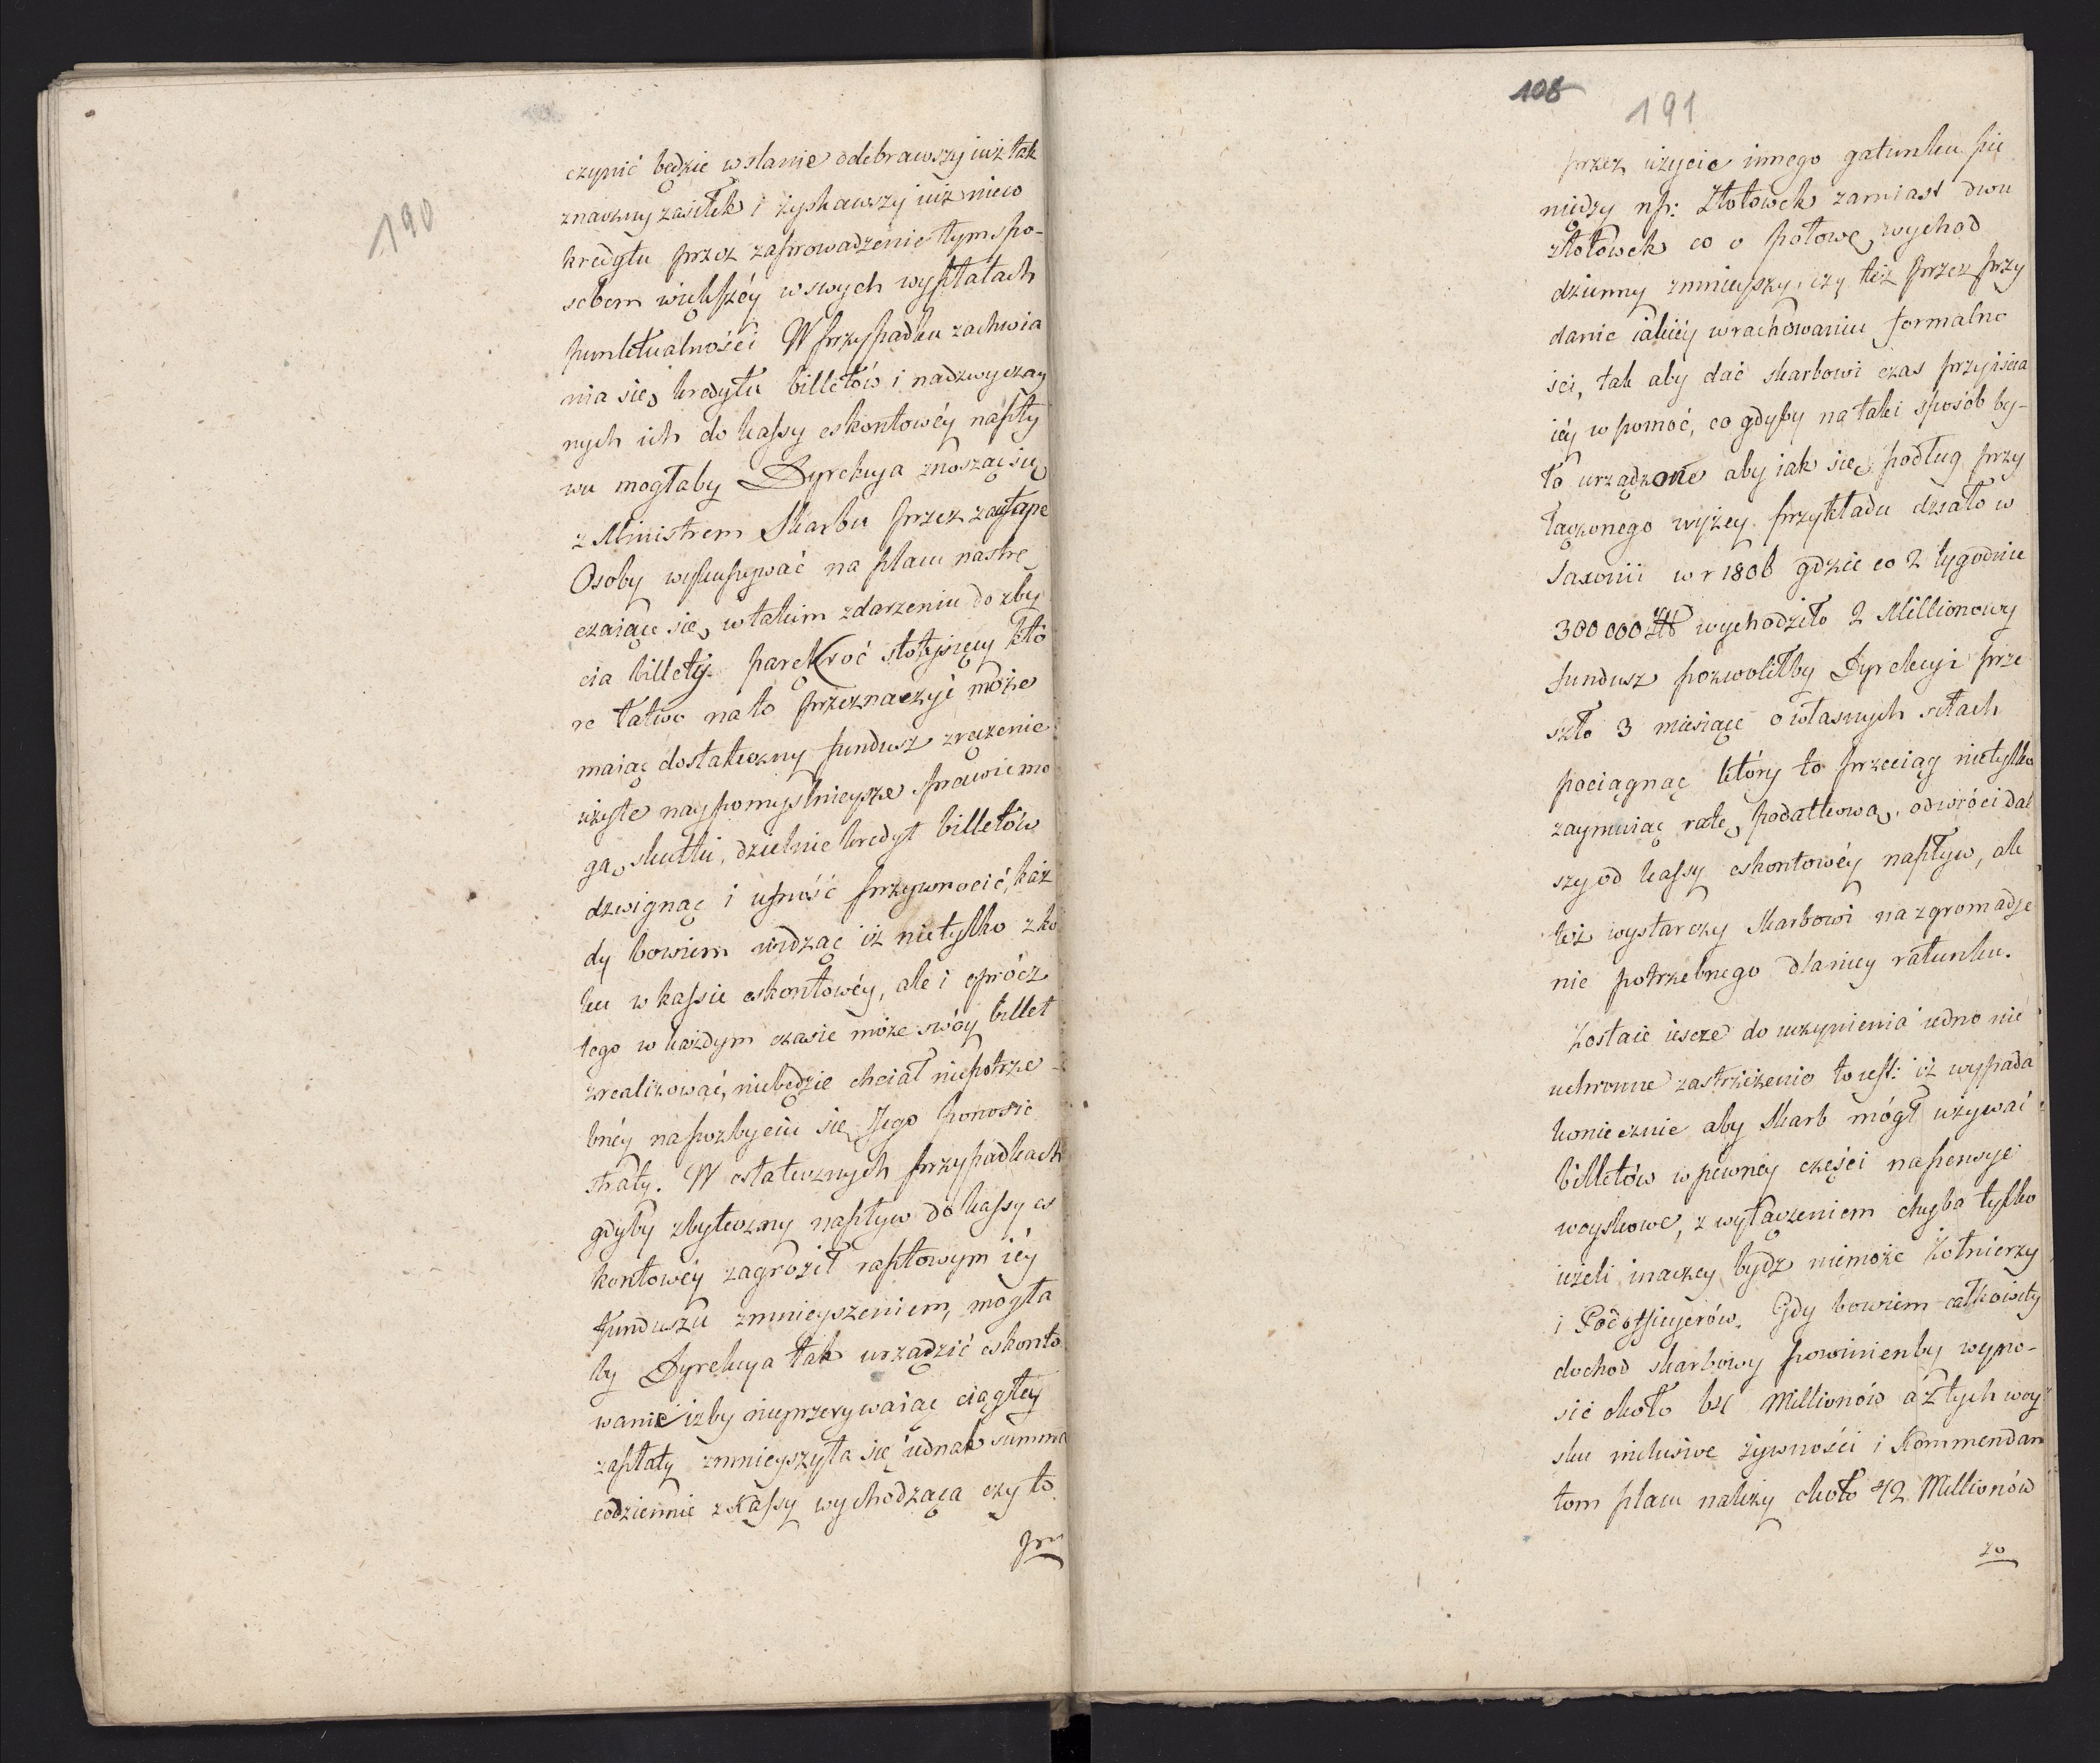 190
czynić będzie w stanie odebrawszy iuż tak
znaczny zasiłek i zyskawszy iuż nieco
kredytu przez zaprowadzenie tym spo-
sobem większéy w swych wypłatach
punktualności W przypadku zachwia
nia się kredytu billetów i nadzwyczay
nych ich do kassy eskontowéy napły
wu mogłaby Dyrekcya znosząc się
z Ministrem Skarbu przez zaufane
Osoby wykupywać na placu nastrę
czaiące się w takim zdarzeniu do zby
cia billety. parękroć stotysięcy któ
re łatwo na to przeznaczyć może
maiąc dostateczny fundusz zręcznie
użyte naypomyslnieysze sprawić mo
gą skutki, dzielnie kredyt billetów
dzwignąć i ufność przywrócić, każ
dy bowiem widząc iż nietylko z ko
ku w kassie eskontowéy, ale i oprócz
tego w każdym czasie może swóy billet
zrealizować, niebędzie chciał niepotrze
bnéy na pozbyciu się Jego ponosić
straty. W ostatecznych przypadkach
gdyby zbyteczny napływ do kassy es
kontowéy zagroził raptowym iéy
funduszu zmnieyszeniem, mogła
by Dyrekcya tak urządzić eskonto
wanie izby nieprzerywaiąc ciągłey
zapłaty zmnieyszyła się iednak summa
codziennie z Kassy wychodząca czy to
prz
108
191
przez użycie innego gatunku pie
niędzy np: Złotowek zamiast dwu
złotówek co o połowę wychod
dzienny zmnieyszy, czy też przez przy
danie iakiéy w rachowaniu formalno
ści, tak aby dać skarbowi czas przyiścia
iéy w pomoć, co gdyby na taki sposób by-
ło urządzone aby iak się podług przy
łączonego wyżey przykładu działo w
Saxonii w r 1806 gdzie co 2 tygodnie
300 000 złł wychodziło 2 Millionowy
fundusz pozwoliłby Dyrekcyi prze
szło 3 miesiące o własnych siłach
pociągnąć który to przeciąg nietylko
zaymuiąc ratę podatkową, odwróci dal
szy od kassy eskontowéy napływ, ale
też wystarczy Skarbowi na zgromadze
nie potrzebnego dla niey ratunku.
Zostaie iescze do uczynienia iedno nie
uchronne zastrzeżenie to iest: iż wypada
koniecznie aby Skarb mógł używać
billetów w pewnéy części na pensye
woyskowe, z wyłączeniem chyba tylko
ieżeli inaczey bydz niemoże Żołnierzy
i Podofficyerów. Gdy bowiem całkowity
dochod skarbowy powinienby wyno-
sić około Millionów a z tych woy
sku inclusive żywności i Kommendan
tom placu należy około 42 Millionów
zo